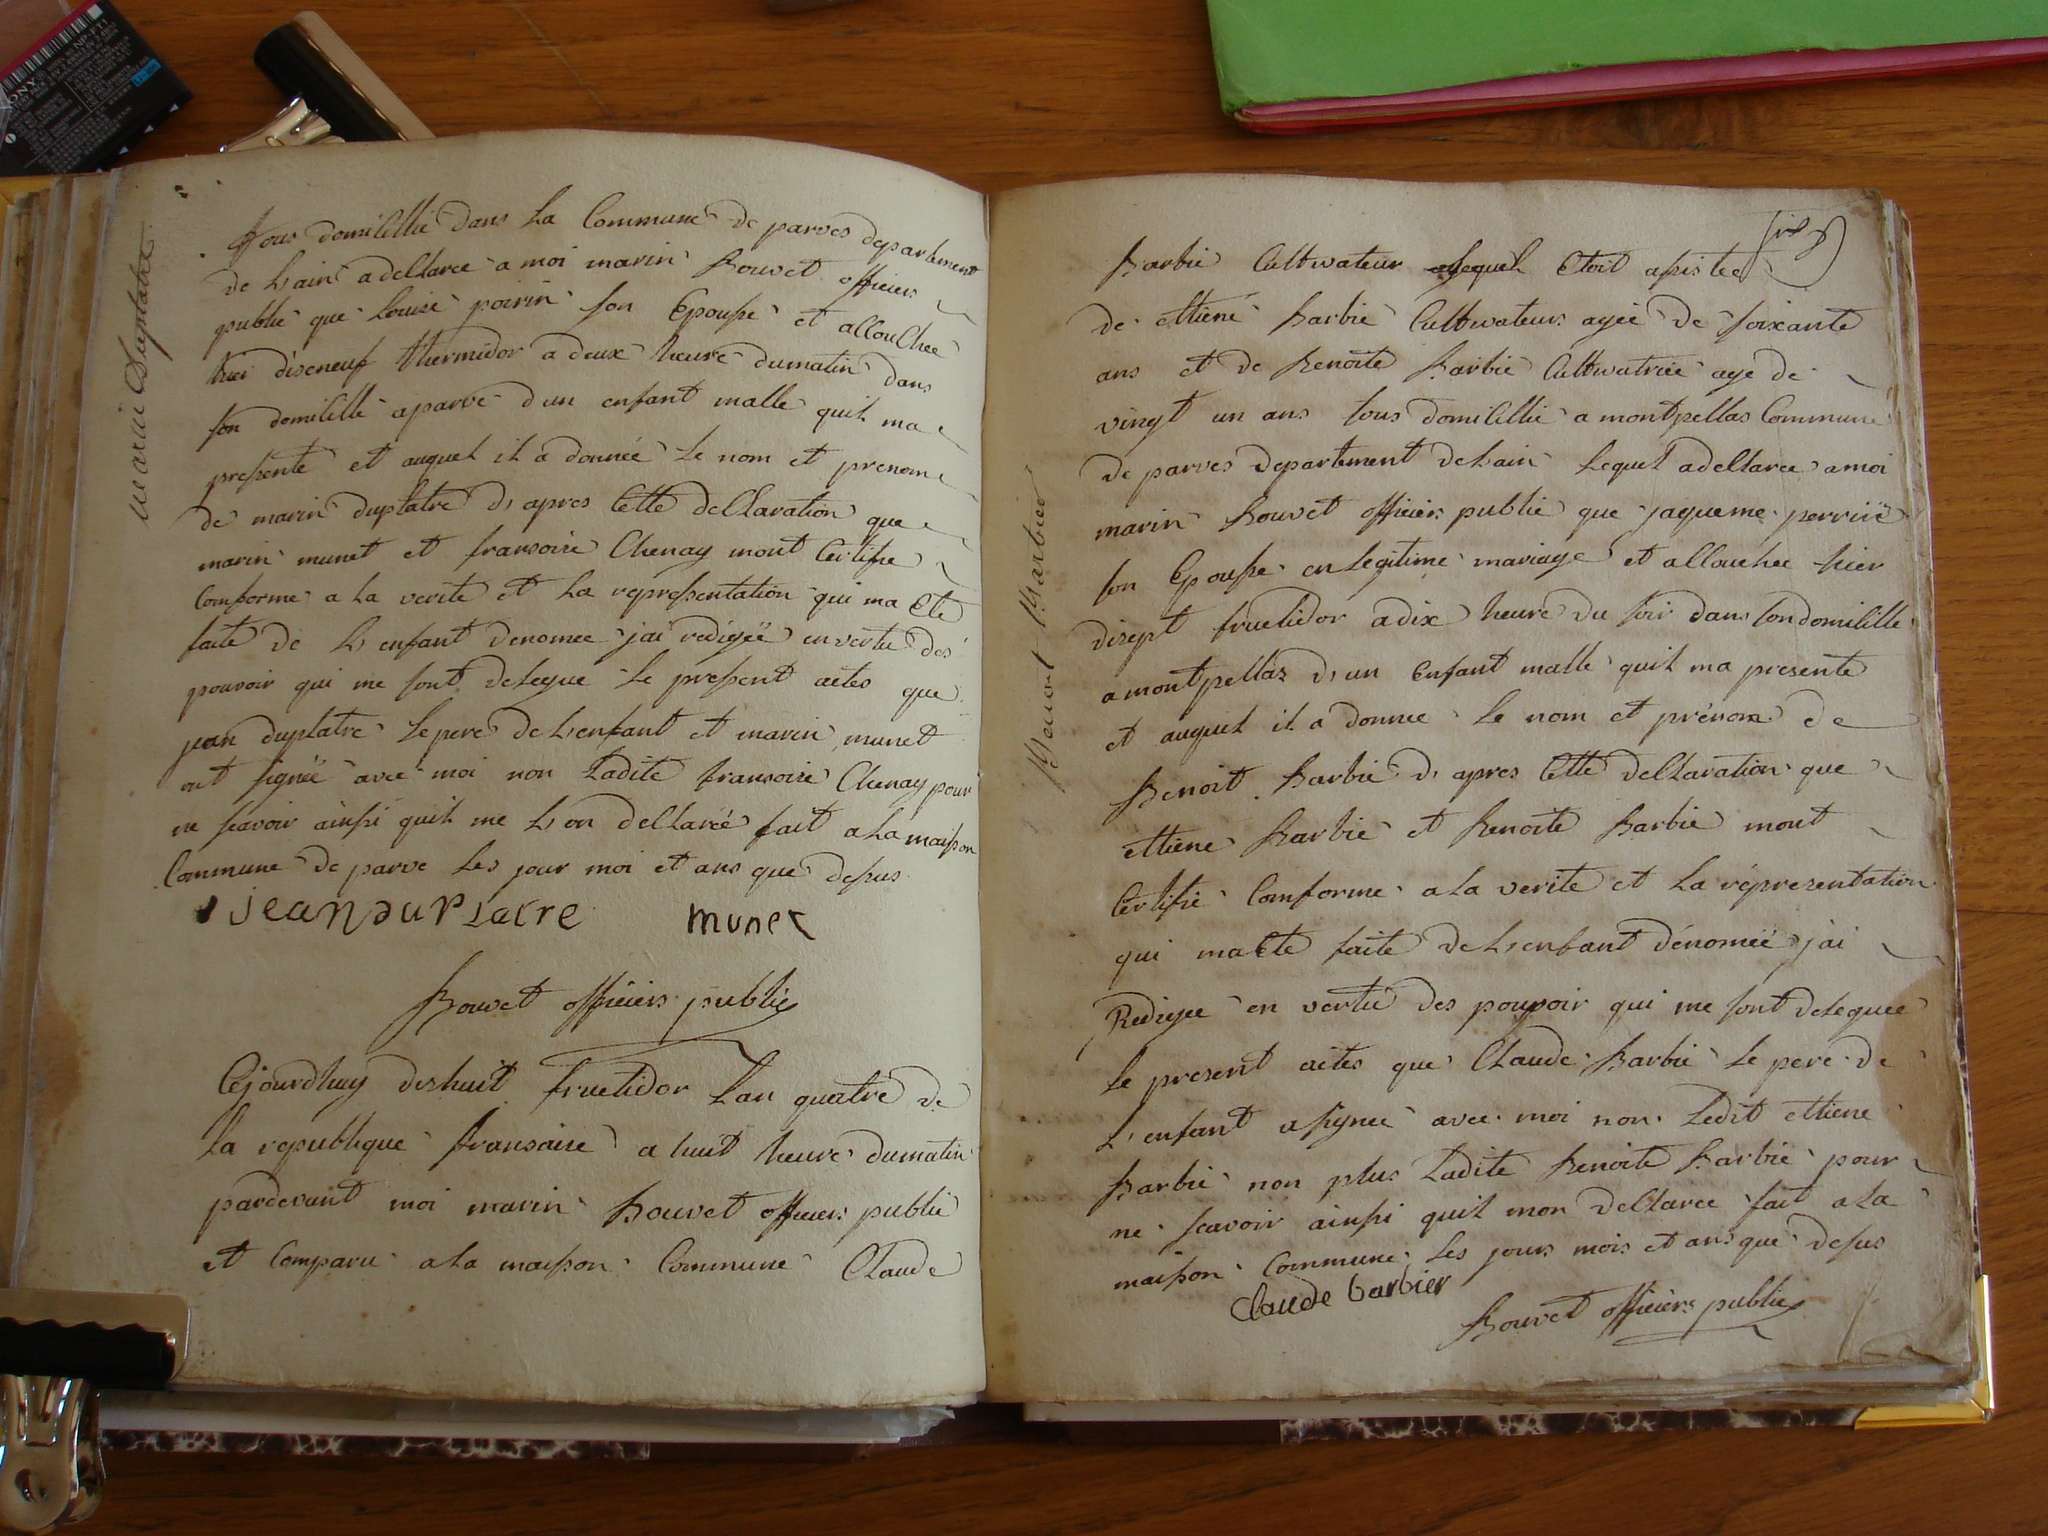 SONY
NP-FT1
marin Duplatre
tous domicillie dans la Commune de parves departement
de Lain a decllaree a moi marin Bouvet officiers
publie que Louise poirin son Epousse et allouchee
hier diseneuf thermidor a deux heure dumatin dans
son domicille a parve d un enfant malle quil ma
pressente et auquel il a donnée le nom et prenom
de marin duplatre d, apres Cette decllaration que
marin munet et fransoise Chenay mont Certifie
Comforme a la verite et la repressentation qui ma Ete
faite de L enfant denomee jai redigéé en vertu des
pouvoir qui me sont delegue le pressent actes que
jean duplatre le pere de Lenfant et marin munet
ont signée avec moi non Ladite fransoise Chenay pour
ne scavoir ainssi quil me Lon decllaréé fait a la maisson
Commune de parve les jour moi et ans que desus
jean duplatre munet
Bouvet officiers publie
Cejourdhuy deshuit fructidor Lan quatre de
la republique fransaise a huit heure dumatin
pardevant moi marin Bouvet officiers publie
et Comparu a la maisson Commune Claude
Barbie Cultivateur lequel Etoit asistee
de ettiene Barbie Cultivateurs agée de soixante
ans et de Benoite Barbie Cultivatrice age de
vingt un ans tous domicillie a montpellas Commune
de parves departement de Lain Lequel a decllaree a moi
marin Bouvet officiers publie que jaqueme perrin
son Epousse en legitime mariage et allouchee hier
disept fructidor a dix heure du soir dans son domicille
a montpellaz d, un Enfant malle quil ma presente
et auquel il a donnee le nom et prénom de
Benoit Barbie d, apres Cette decllaration que
ettiene Barbie et Benoite Barbie mont
Certifie Comforme a la verite et la répresentation
qui ma Ete faite de L, enfant dénoméé jai
Redigee en vertu des pouvoir qui me sont deleguee
le present actes que Claude Barbie le pere de
L, enfant a signee avec moi non Ledit ettiene
Barbie non plus Ladite Benoite Barbie pour
ne scavoir ainssi quil mon decllaree fait a la
maisson Commune les jours mois et ans que desus
Claude barbier
Bouvet officiers publie
Benoit Barbier